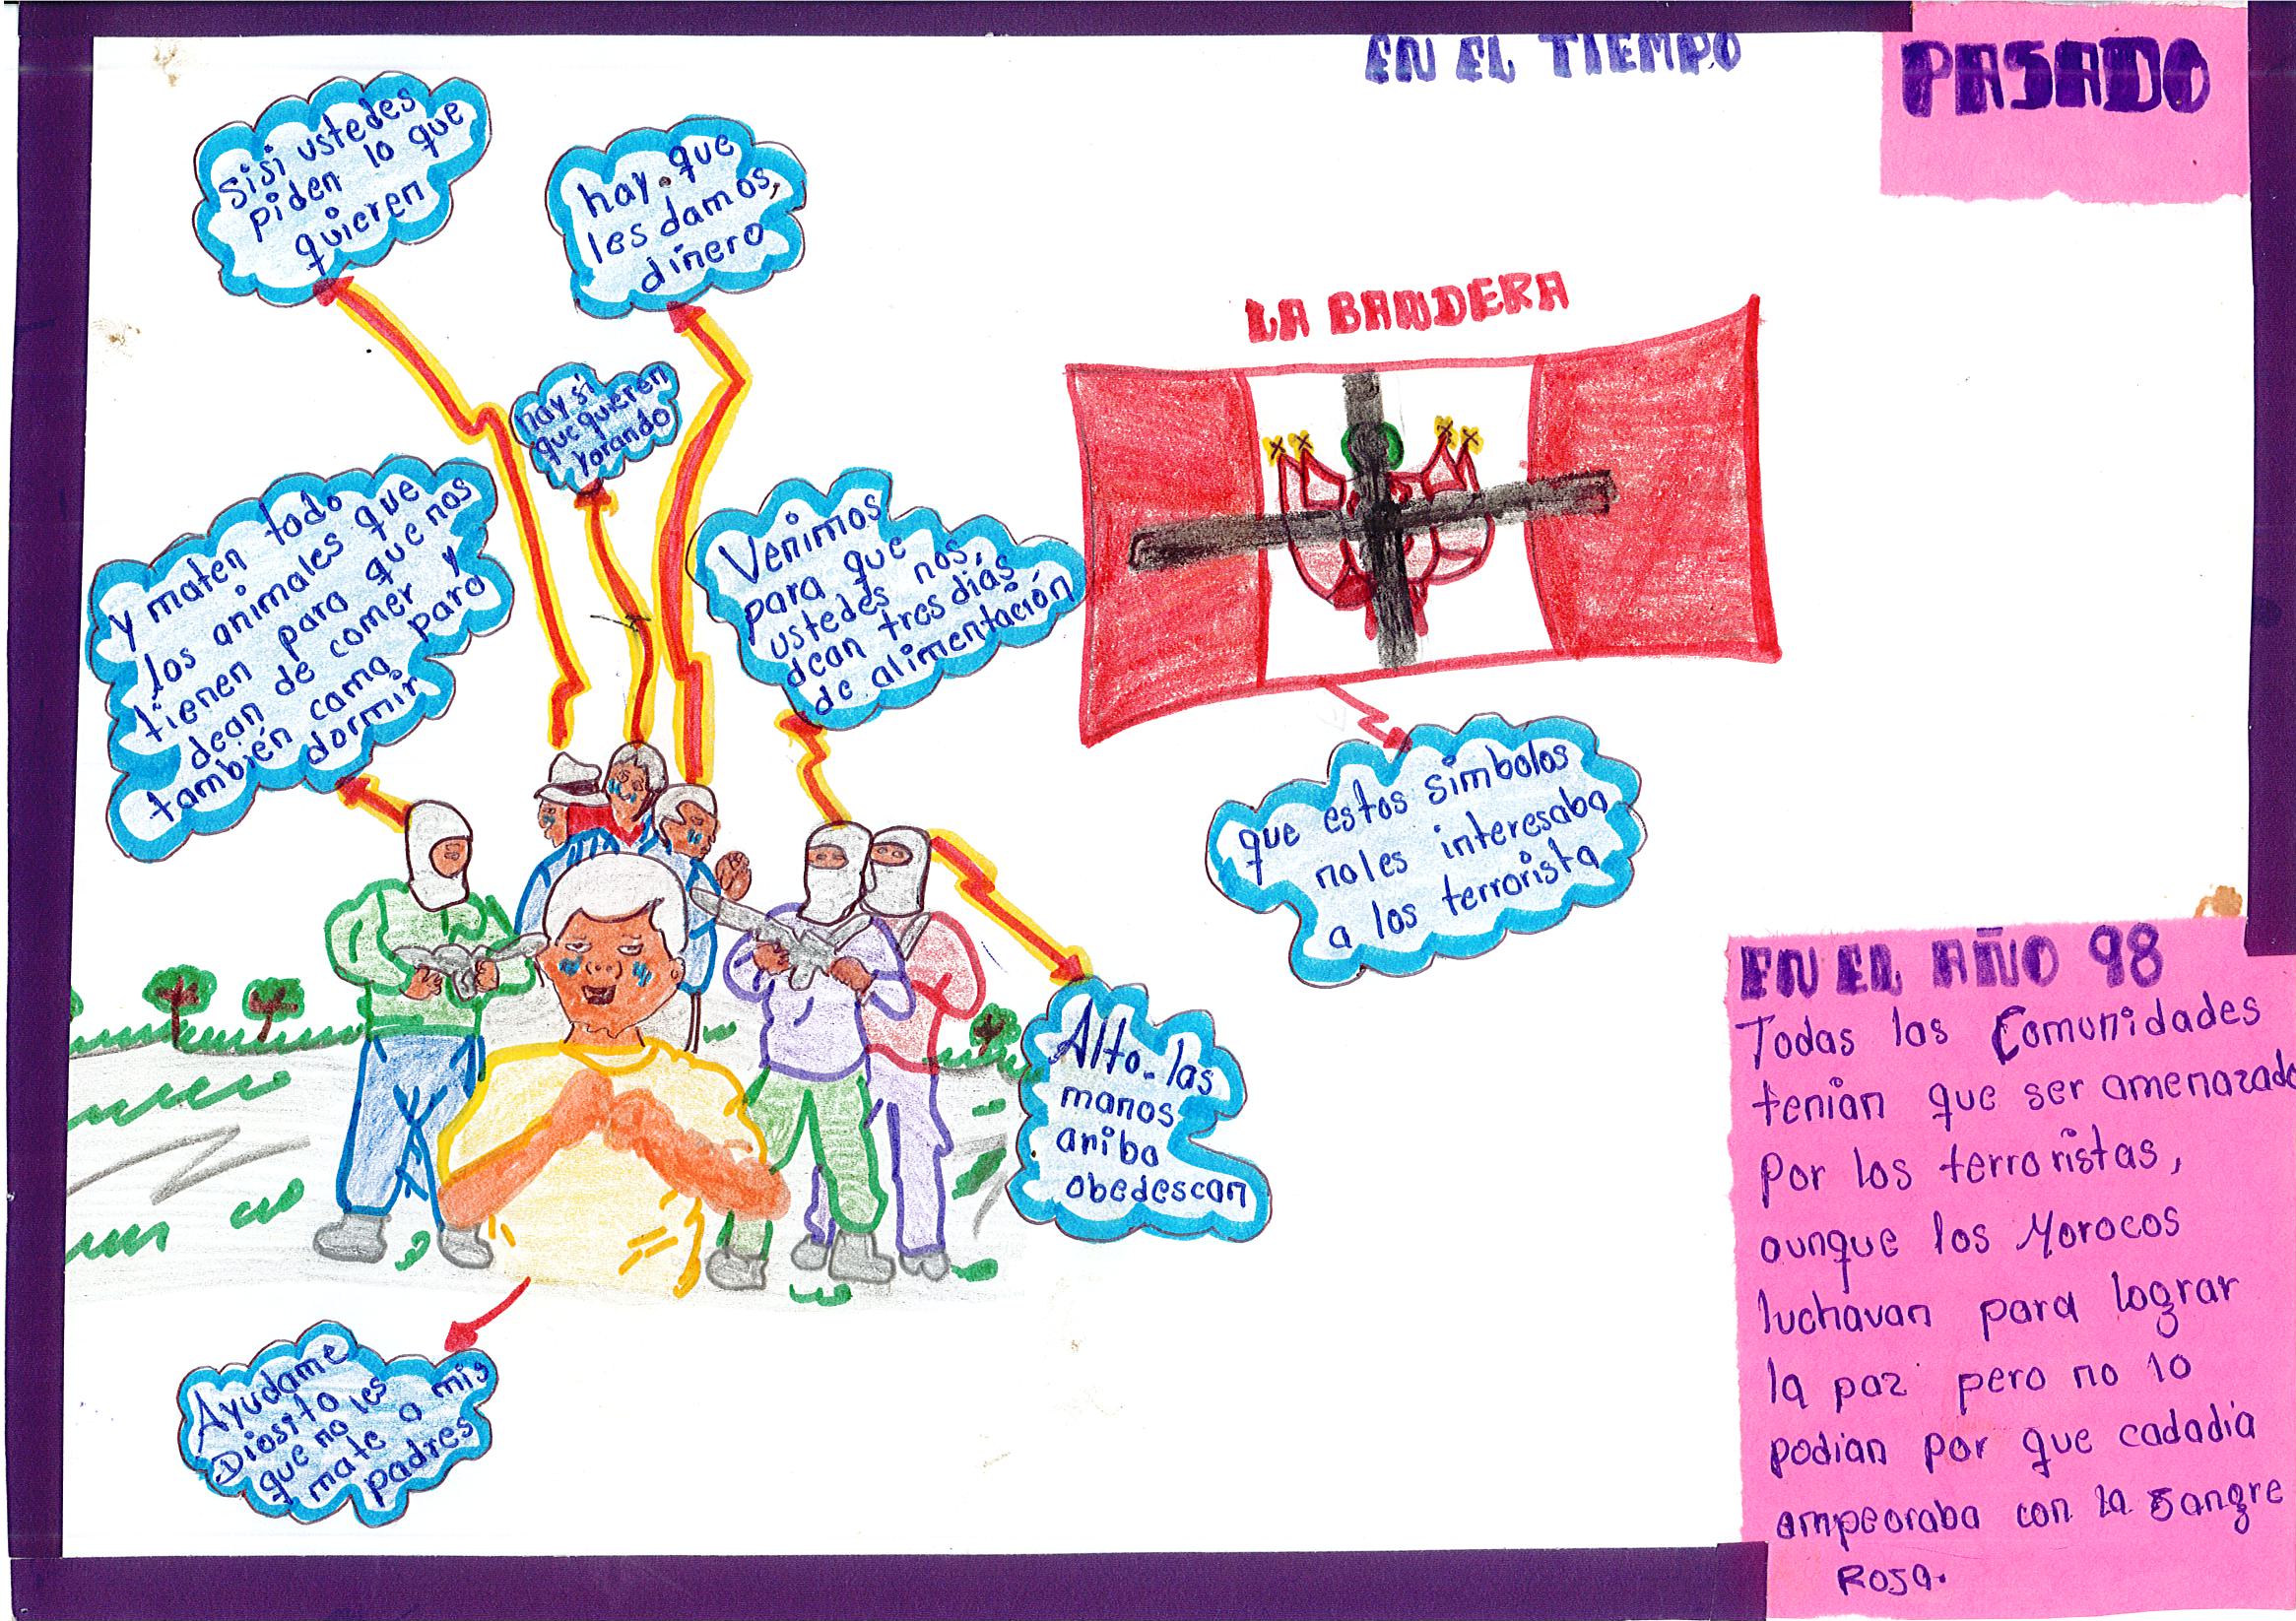 EN EL TIEMPO
PASADO
sisi ustedes
piden lo que
quieren
hay. que
les damos,
dinero
hay si
que quieren
Yorando
y maten todo
los animales que
tienen para que nos
dean de comer y
también cama para
dormir
Venimos
para que
ustedes nos,
dean tres días
de alimentación
LA BANDERA
que estos simbolos
noles interesaba
a los terrorista
Alto-las
manos
ariba
obedescan
Ayudame
Diosito
que no les
mate a mis
padres
EN EL AÑO 98
Todas las Comunidades
tenian que ser amenazado
Por los terroristas,
aunque los Morocos
luchavan para lograr
la paz pero no lo
podian por que cadadia
ampeoraba con la sangre
ROSA.